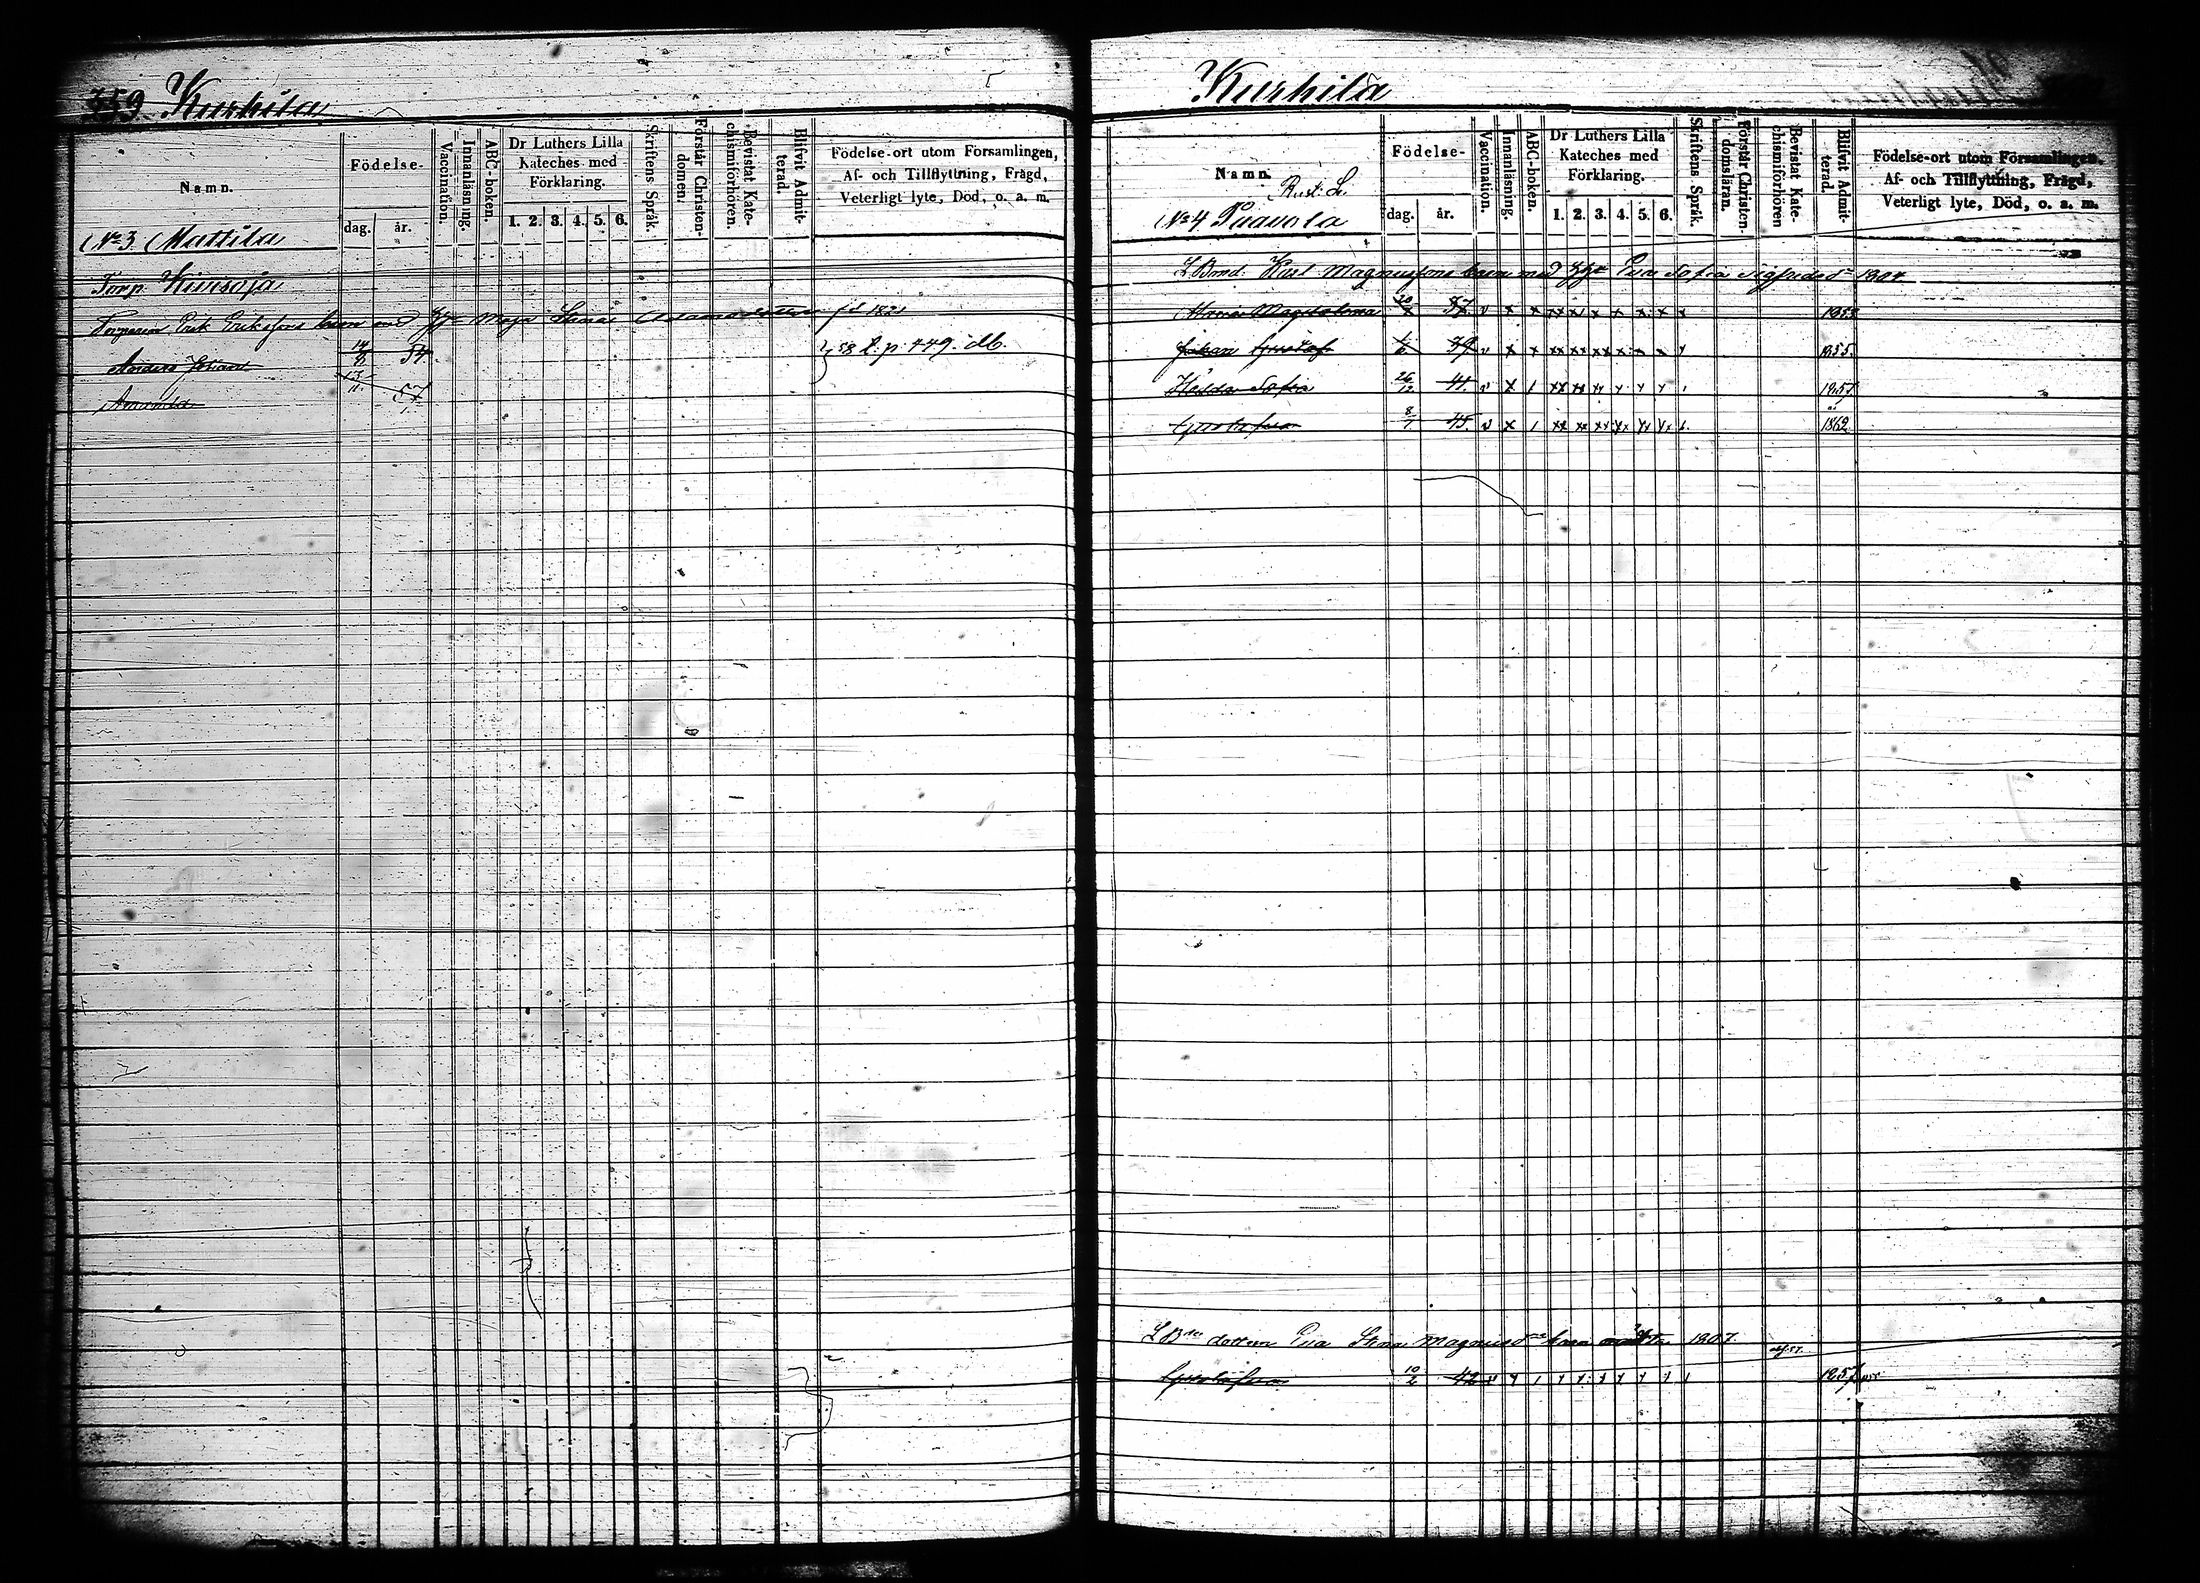 359 Kurhila
Namn.
Födelse-
dag. år.
Vaccination.
Innanläsning.
ABC-boken.
Dr Luthers Lilla Kateches med Förklaring.
1. 2. 3. 4. 5. 6.
Skriftens Språk.
Förstår Christendomen.
Bevistat Katechismiförhören.
Blifvit Admitterad.
Födelse-ort utom Församlingen,
Af- och Tillflyttning, Frägd,
Veterligt lyte, Död, o. a. m.
No 3 Mattila
Torp. Kivisoja
Torparen Erik Eriksons barn med Maja Stina fd 1821
Anders Johan 54
Amanda 57
58 t. p. 449. db.
Kurhila
Namn.
Rust. L.
No 4 Paavola
Födelse-
dag. år.
Vaccination.
Innanläsning.
ABC-boken.
Dr Luthers Lilla
Kateches med
Förklaring.
1. 2. 3. 4. 5. 6.
Skriftens Språk.
Förstår Christendomsläran.
Bevistat Katechismiförhören
Blifvit Admitterad.
Födelse-ort utom Församlingen,
Af- och Tillflyttning, Frägd,
Veterligt lyte, Död, o. a. m.
Karl Magnussons barn med Eva Sofia Sigfridsdr 1804.
Maria Magdalena 37. v x x xx xx x x x x x
Johan Gustaf 39 v x x xx xx xx x x x 1855.
Hedda Sofia 26/12 41. v x 1 1857
Gustafva 8/1 45. v x 1 1862
dottern Eva Stina Magnusd barn 1807.
Gustafva 10/2 42 1857